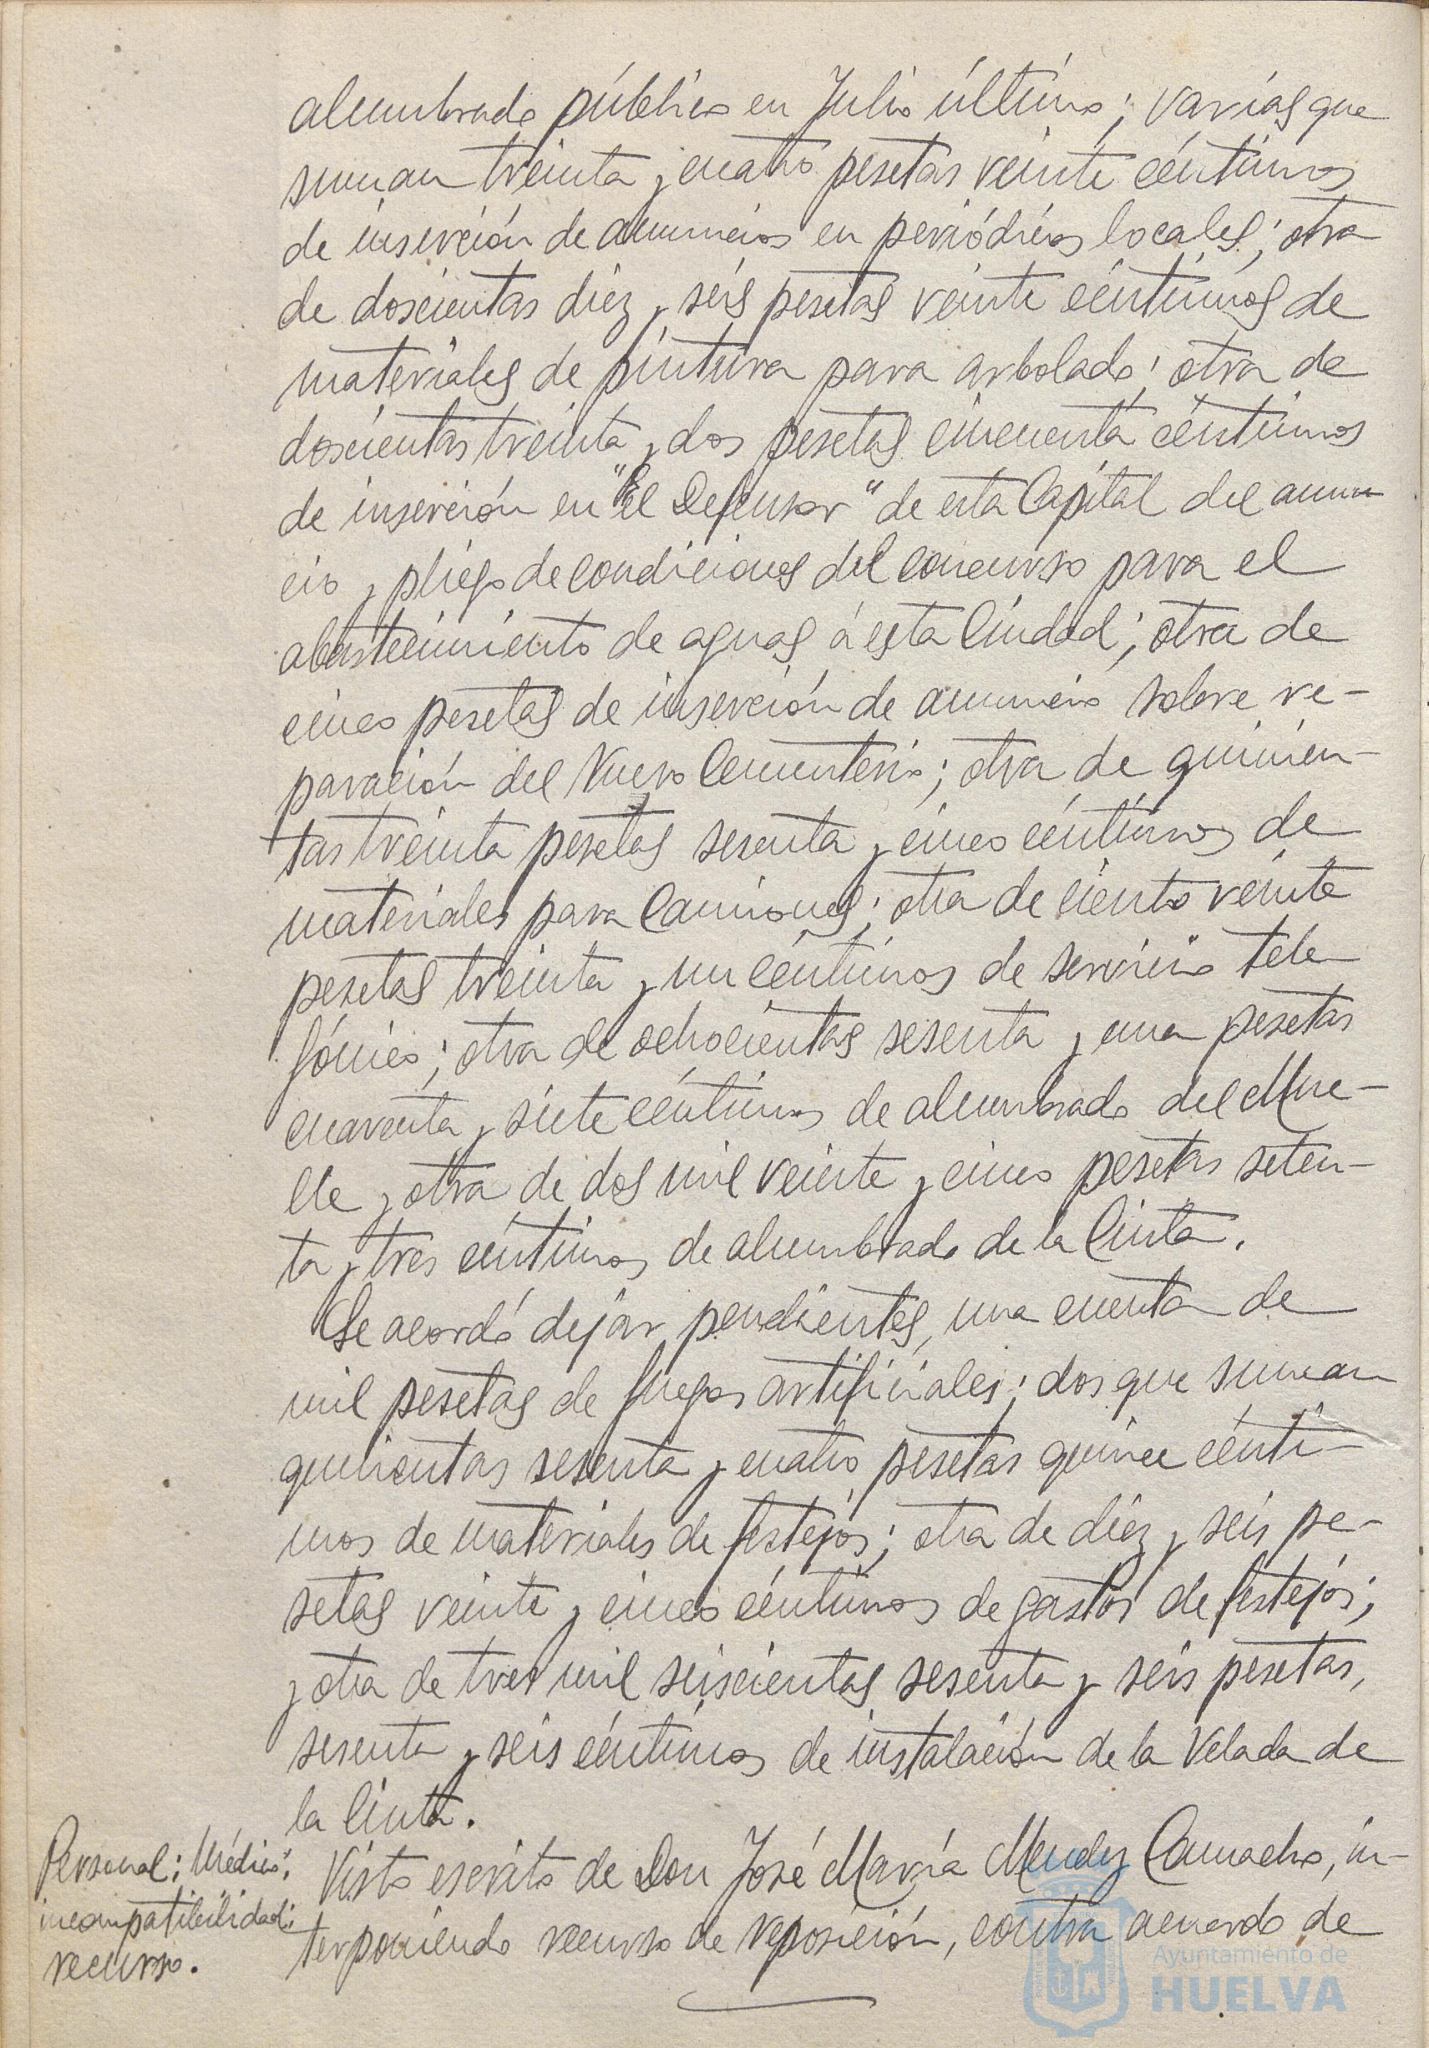 alumbrado público en Julio último; varias que
suman treinta y cuatro pesetas veinte céntimos
de inserción de anuncios en periódicos locales; otra
de doscientas diez y seis pesetas veinte céntimos de
materiales de pintura para arbolado; otra de
doscientas treinta y dos pesetas cincuenta céntimos
de inserción en "El Defensor" de esta Capital del anun
cio y pliego de condiciones del concurso para el
abastecimiento de aguas á esta Ciudad; otra de
cinco pesetas de inserción de anuncio sobre re-
paración del Nuevo Cementerio; otra de quinien-
tas treinta pesetas sesenta y cinco céntimos de
materiales para Camiones; otra de ciento veinte
pesetas treinta y un céntimos de servicio tele
fónico; otra de ochocientas sesenta y una pesetas
cuarenta y siete céntimos de alumbrado del Mue-
lle y otra de dos mil veinte y cinco pesetas seten-
ta y tres céntimos de alumbrado de la Cinta.
Se acordó dejar pendientes, una cuenta de
mil pesetas de fuegos artificiales; dos que suman
quinientas sesenta y cuatro pesetas quince cénti-
mos de materiales de festejos; otra de diez y seis pe-
setas veinte y cinco céntimos de gastos de festejos;
y otra de tres mil seiscientas sesenta y seis pesetas,
sesenta y seis céntimos de instalación de la Velada de
la Cinta.
Personal: Médico:
incompatibilidad:
recurso.
Visto escrito de Don José María Mendez Camacho, in-
terponiendo recurso de reposición, contra acuerdo de
Ayuntamiento de
HUELVA